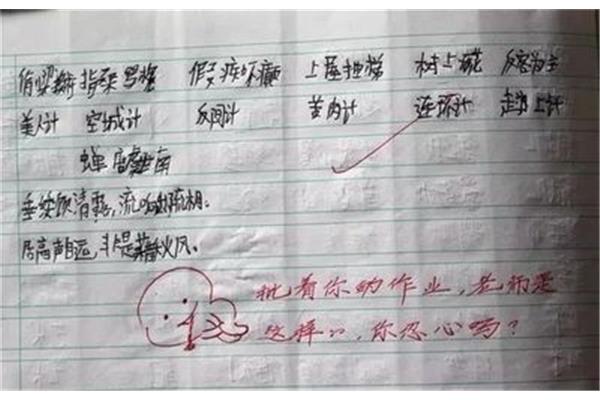 指桑骂槐 假痴不癫 上屋抽梯 树上开花 反客为主
美人计 空城计 反间计 苦肉计 连环计 走为上计
蝉 虞世南
垂緌饮清露,流响出疏桐。
居高声自远,非是藉秋风。
批着你的作业,老师是
这样的,你忍心吗?